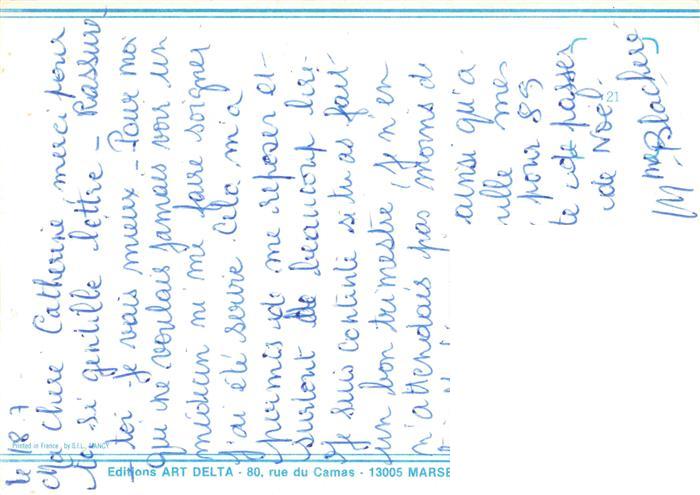 le 18.7
Ma chère Catherine merci pour
ta si gentille lettre - Rassure
- toi - Je vais mieux - Pour moi
qui ne voulais jamais voir un
médecin ni me faire soigner
j'ai été servie. Cela m'a
permis de me reposer et
surtout de beaucoup lire
Je suis contente si tu as fait
un bon trimestre, Je n'en
n'attendais pas moins de
ainsi qu'à
ille mes
pour 89
te de passer
de Noël.
M me Blachère
21
Printed in France, by S.I.L. NANCY
Editions ART DELTA - 80, rue du Camas - 13005 MARSE